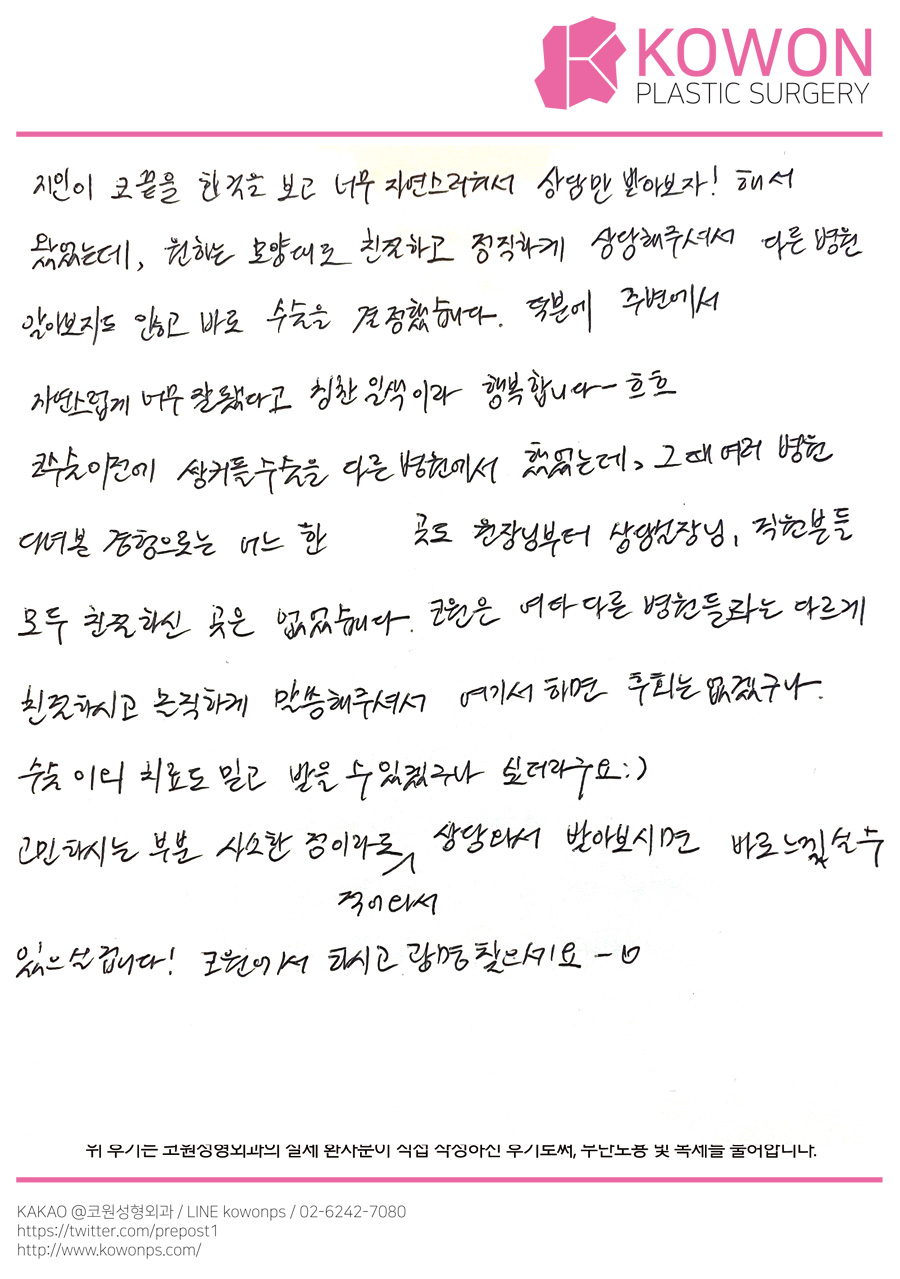 KOWON
PLASTIC SURGERY
지인이 코끝을 한것을 보고 너무 자연스러워서 상담만 받아보자! 해서
왔었는데, 원하는 모양대로 친절하고 정직하게 상담해주셔서 다른 병원
알아보지도 않고 바로 수술을 결정했습니다. 덕분에 주변에서
자연스럽게 너무 잘됐다고 칭찬 일색이라 행복합니다~ 흐흐
코수술이전에 쌍커플수술을 다른 병원에서 했었는데, 그때 여러 병원
다녀본 경험으로는 어느 한 곳도 원장님부터 상담실장님, 직원분들
모두 친절하신 곳은 없었습니다. 코원은 여타 다른 병원들과는 다르게
친절하시고 솔직하게 말씀해주셔서 여기서 하면 후회는 없겠구나.
수술 이외 치료도 믿고 받을 수 있겠구나 싶더라구요:)
고민하시는 부분 사소한 점이라도 상담와서 받아보시면 바로느낄실수
적어와서
있으실 겁니다! 코원에서 하시고 광명찾으세요 ~
위 후기는 코원성형외과의 실제 환자분이 직접 작성하신 후기로써, 무단도용 및 복제를 불허합니다.
KAKAO @코원성형외과 / LINE kowonps / 02-6242-7080
https://twitter.com/prepost1
http://www.kowonps.com/